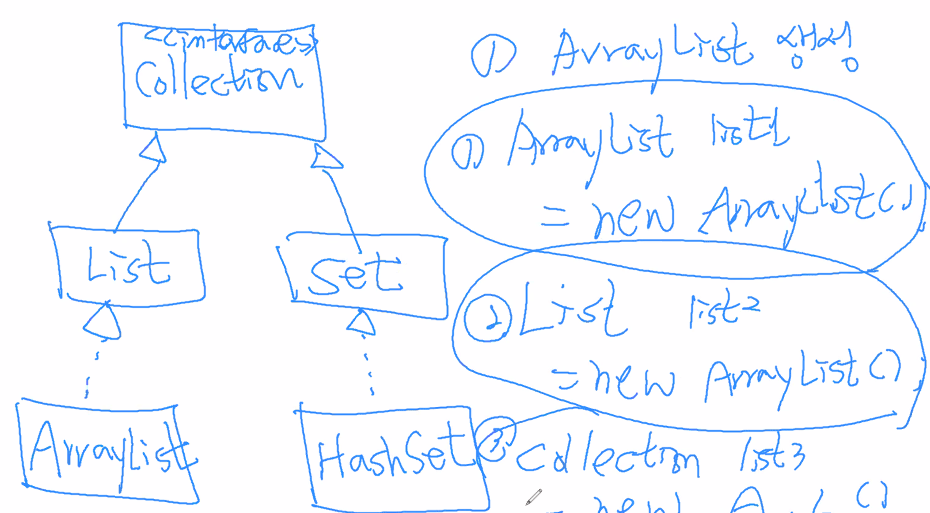 <<interfaces>>
Collection
List
Set
ArrayList
HashSet
① ArrayList 생성
① ArrayList list1
= new ArrayList()
② List list2
= new ArrayList()
③ Collection list3
= new